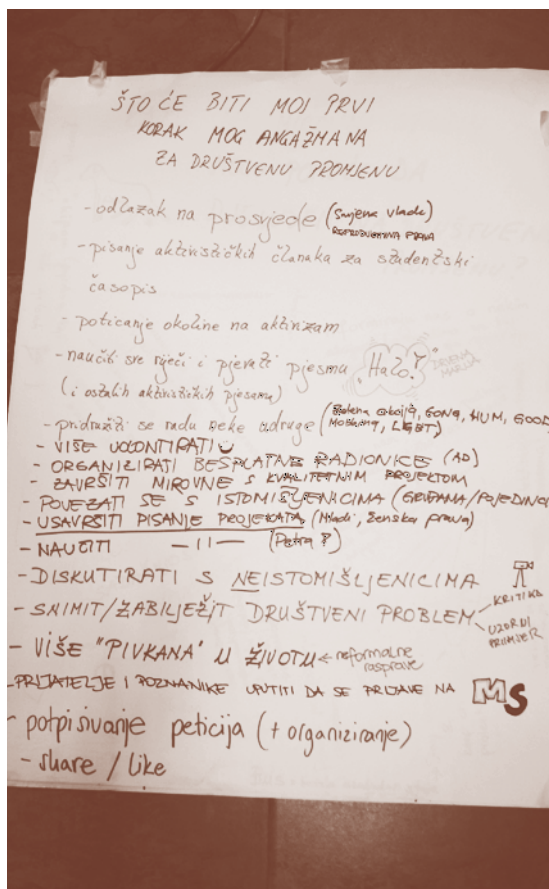 ŠTO ĆE BITI MOJ PRVI
KORAK MOG ANGAŽMANA
ZA DRUŠTVENU PROMJENU
- odlazak na prosvjede (Smjena vlade)
REPRODUKTIVNA PRAVA
- pisanje aktivističkih članaka za studentski
časopis
- poticanje okoline na aktivizam
- naučiti sve riječi i pjevati pjesmu „Halo!"
DRVENA
MARIJA
(i ostalih aktivističkih pjesama)
- pridružiti se radu neke udruge (Zelena akcija, GONG, HUM, GOOD
LGBT)
- VIŠE VOLONTIRATI
- ORGANIZIRATI BESPLATNE RADIONICE (AD)
- ZAVRŠITI MIROVNE S KVALITETNIM PROJEKTOM
- POVEZATI SE S ISTOMIŠLJENICIMA (GRUPAMA/POJEDINCI
- USAVRŠITI PISANJE PROJEKATA (Mladi, ženska prava)
- NAUČITI —11— (Petra?)
- DISKUTIRATI S NEISTOMIŠLJENICIMA
- SNIMIT/ZABILJEŽIT DRUŠTVENI PROBLEM
KRITIKA
UZORNI
PRIMJER
- VIŠE "PIVKANA" U ŽIVOTU ← neformalne
rasprave
- PRIJATELJE I POZNANIKE UPUTITI DA SE PRIJAVE NA MS
- potpisivanje peticija (+ organiziranje)
- share / like